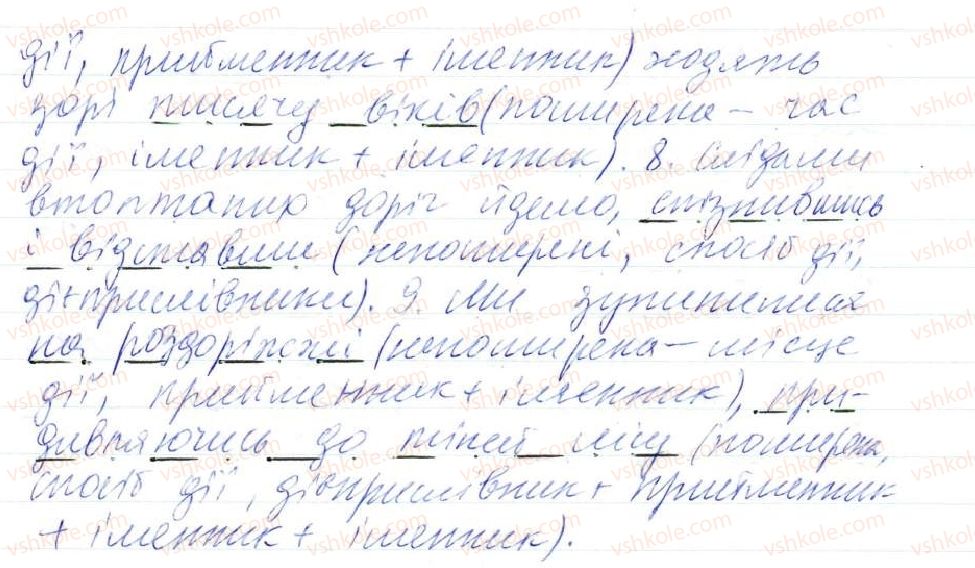 дії, прийменник + іменник) ходять
зорі тисячу віків (поширена – час
дії, іменник + іменник). 8. Слідами
втоптаних доріг йдемо, спізнившись
і відставши (непоширені, спосіб дії,
дієприслівники). 9. Ми зупинилися
на роздоріжжі (непоширена – місце
дії, прийменник + іменник), при-
дивляючись до тіней лісу (поширена,
спосіб дії, дієприслівник + прийменник
+ іменник + іменник).